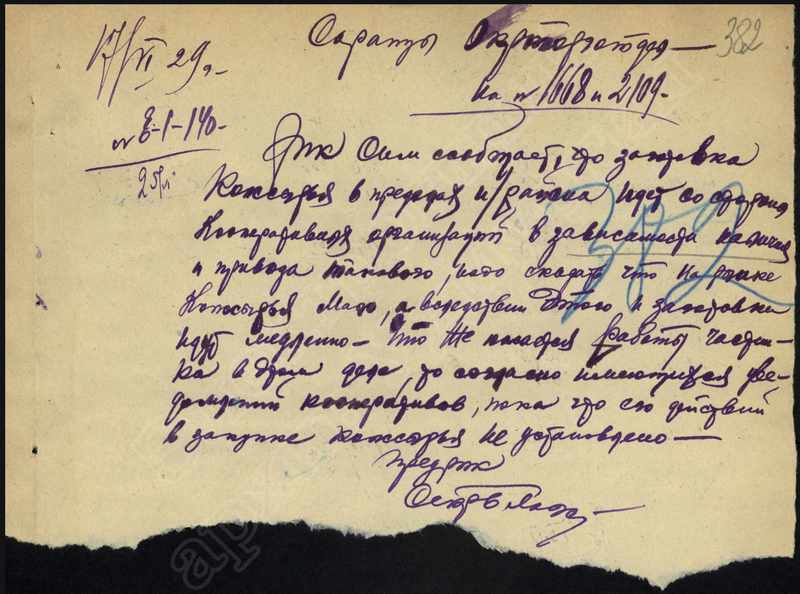 382
17/VI 29 г.
Окрторготдел
На № 1668 и 2109.
№ 8-1-140.
РИК Сим сообщает, что заготовка
Кожсырья в пределах н/района идет со стороны
Кооперативных организаций в зависимости наличия
и привода такового, надо сказать что на рынке
Кожсырья Мало, а вследствии Этого и заготовки
идут медленно – Что Же касается работы частни-
ка в этом деле, то согласно имеющихся све-
дений кооперативов, пока что его действий
в закупке кожсырья не установлено
Предрик